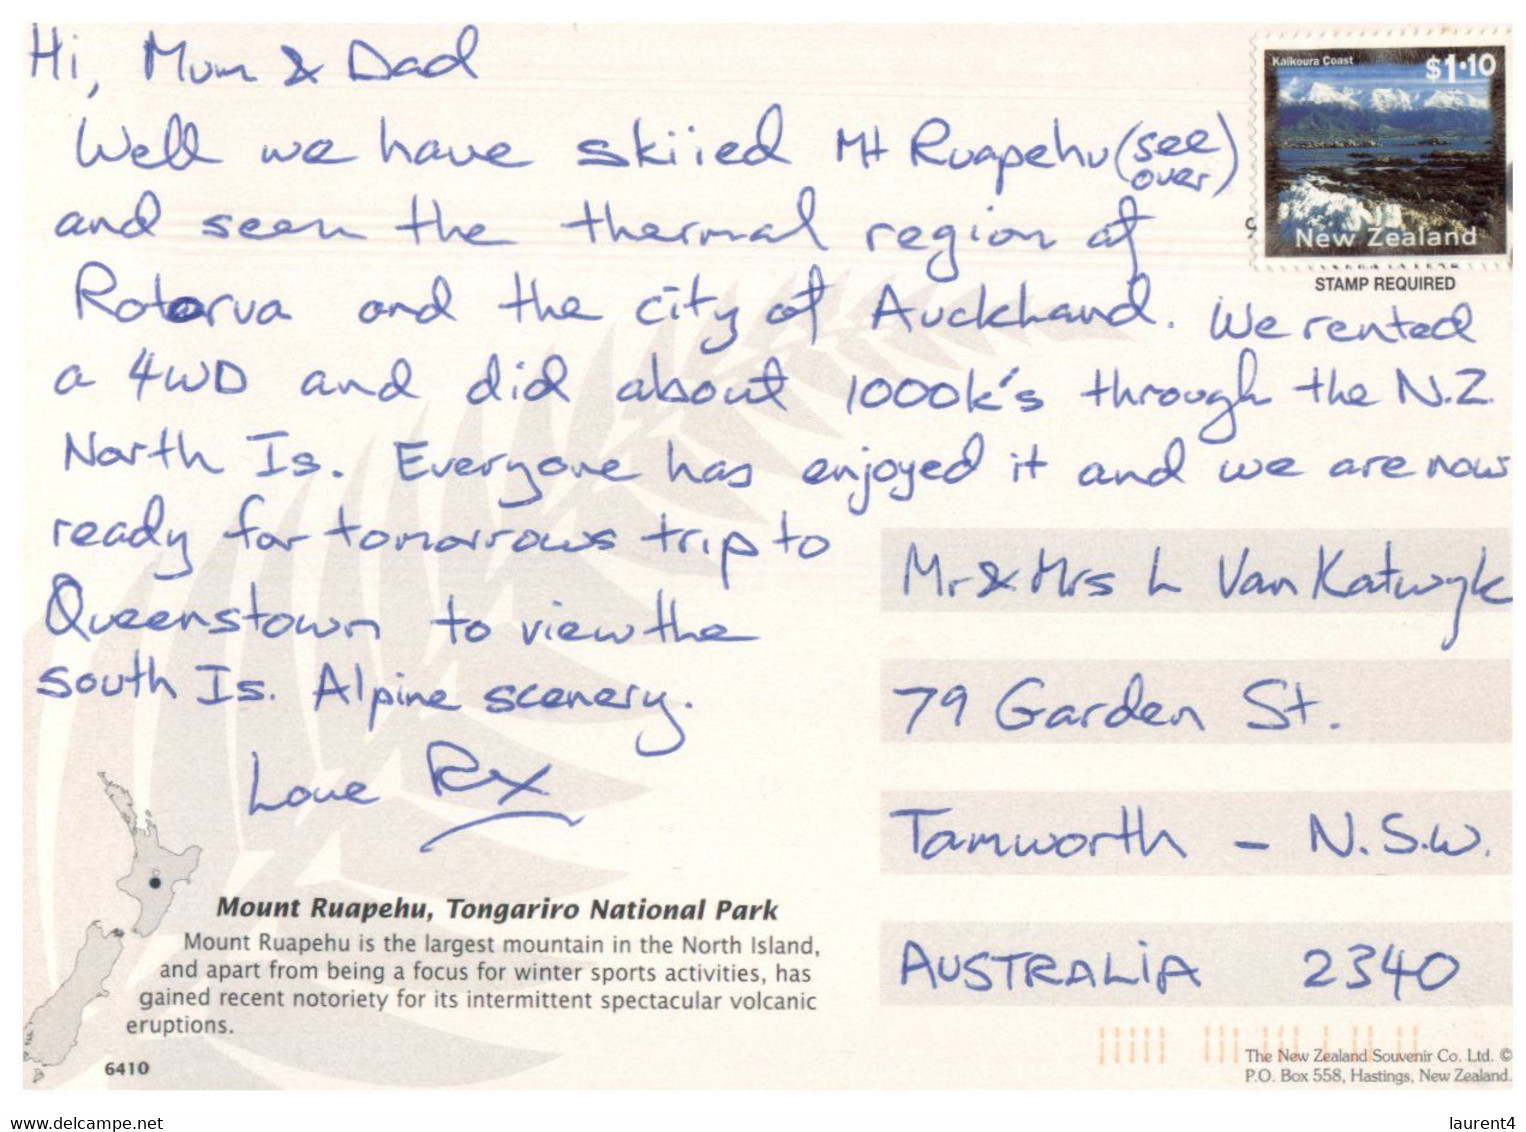 Hi, Mum & Dad
Well we have skiied Mt Ruapehu (see over)
and seen the thermal region of
Rotorua and the city of Auckhand. We rented
a 4WD and did about 1000k's through the N.Z.
North Is. Everyone has enjoyed it and we are now
ready for tomorrows trip to
Queenstown to view the
south Is. Alpine scenery.
Love RX
Kaikoura Coast
$1.10
New Zealand
STAMP REQUIRED
Mr & Mrs L Van Katwyk
79 Garden St.
Tamworth - N.S.W.
AUSTRALiA 2340
Mount Ruapehu, Tongariro National Park
Mount Ruapehu is the largest mountain in the North Island,
and apart from being a focus for winter sports activities, has
gained recent notoriety for its intermittent spectacular volcanic
eruptions.
6410
The New Zealand Souvenir Co. Ltd. ©
P.O. Box 558, Hastings, New Zealand.
www.delcampe.net
laurent4